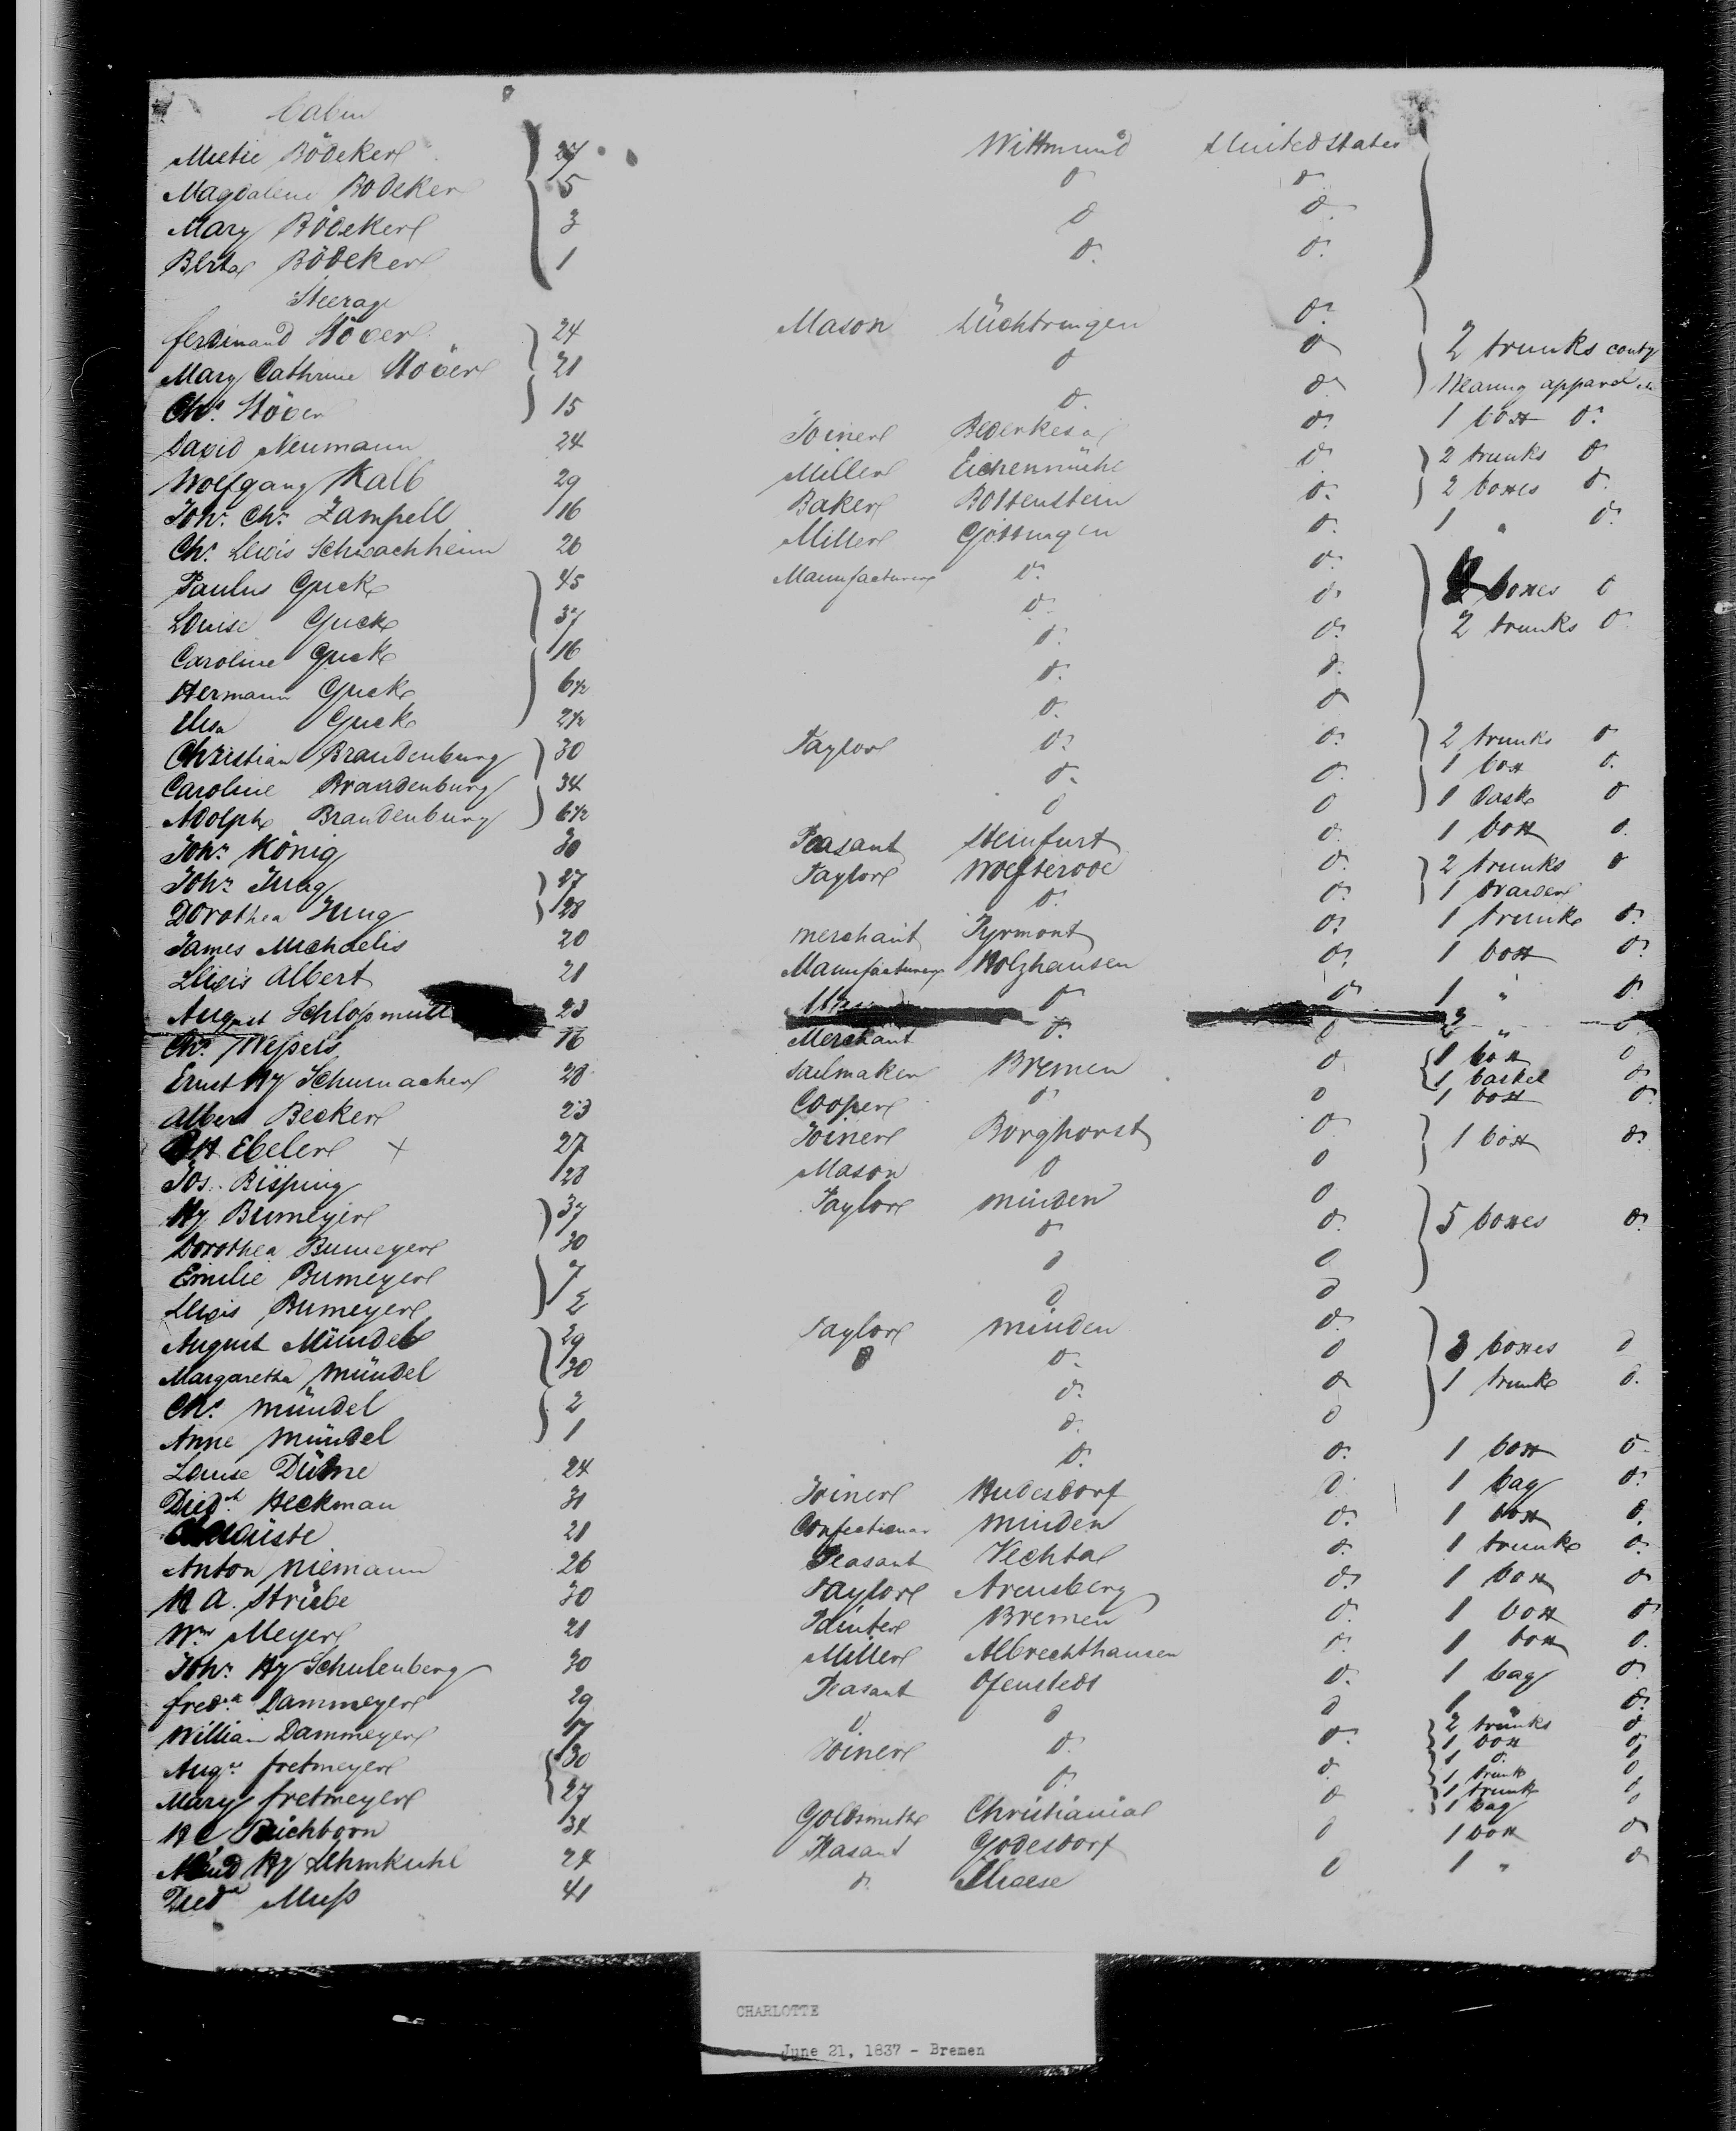 Cabin
Metie Bödeker 24 Wittmund United States
Magdalene Bödeker 5 do do
Mary Bödeker 3 do do
Berta Bödeker 1 do do
Steerage
Ferdinand Stöver 24 Mason Lüchtringen do 2 trunks contg
Mary Cathrine Stöver 21 do do Wearing apparel
Chs. Stöver 15 do do
David Neumann 24 Joiner Bederkesa do 1 box do
Wolfgang Kalb 29 Miller Eichenmühl do 2 trunks do
Johs. Chs. Zampell 16 Baker Bottenstein do 2 boxes do
Chs. Lewis Schwachheim 26 Miller Göttingen do 1 " do
Paulus Guck 45 Manufacturer do do boxes do
Louise Guck 37 do do 2 trunks do
Caroline Guck 16 do do
Hermann Guck 6½ do do
Elisa Guck 2½ do do
Christian Brandenburg 30 Taylor do do 2 trunks do
Caroline Brandenburg 34 do do 1 box do
Adolph Brandenburg 6½ do do 1 Cask do
Johs. König 30 Peasant Steinfurt do 1 box do
Johs. Jung 27 Taylor Wolfterode do 2 trunks do
Dorothea Jung 28 do do 1
James Michaelis 20 merchant Pyrmont do 1 trunk do
Lewis Albert 21 Manufacturer Holzhausen do 1 box do
August Schloßmüll 23 do do 1 " do
Chs. 16 Merchant do do 2 " do
Ernst Hy Schumacher 28 Sailmaker Bremen do 1 box do
1 basket do
Albert Becker 23 Cooper do do 1 box do
Ebeler x 27 Joiner Borghorst do 1 box do
Jos. Bisping 28 Mason do do
Hy Bumeyer 37 Taylor Minden do 5 boxes do
Dorothea Bumeyer 30 do do
Emilie Bumeyer 7 do do
Lewis Bumeyer 2 do do
August Mündel 29 Taylor Minden do 3 boxes do
Margaretha Mündel 30 do do 1 trunk do
Chs. Mündel 2 do do
Anne Mündel 1 do do
Louise 24 do do 1 box do
Died. Heckman 31 Joiner Hudesdorf do 1 bag do
21 Confectioner Minden do 1 box do
Anton Niemann 26 Peasant Vechta do 1 trunk do
H A. Strübe 30 Taylor Arensberg do 1 box do
Wm. Meyer 21 Painter Bremen do 1 box do
Johs. Hy Schulenberg 30 Miller Albrechthausen do 1 box do
Fred. Dammeyer 29 Peasant Ofenstedt do 1 bag do
William Dammeyer 17 do do do 1 " do
Aug. Fretmeyer 30 Joiner do do 2 trunks do
1 box do
Mary Fretmeyer 27 do do 1 do
1 trunk do
H C Reichborn 34 Goldsmith Christiania do 1 trunk do
1 bag do
Hy Lehmkuhl 24 Peasant Godesdorf do 1 box do
Died. Muß 41 do do 1 " do
CHARLOTTE
June 21, 1837 - Bremen